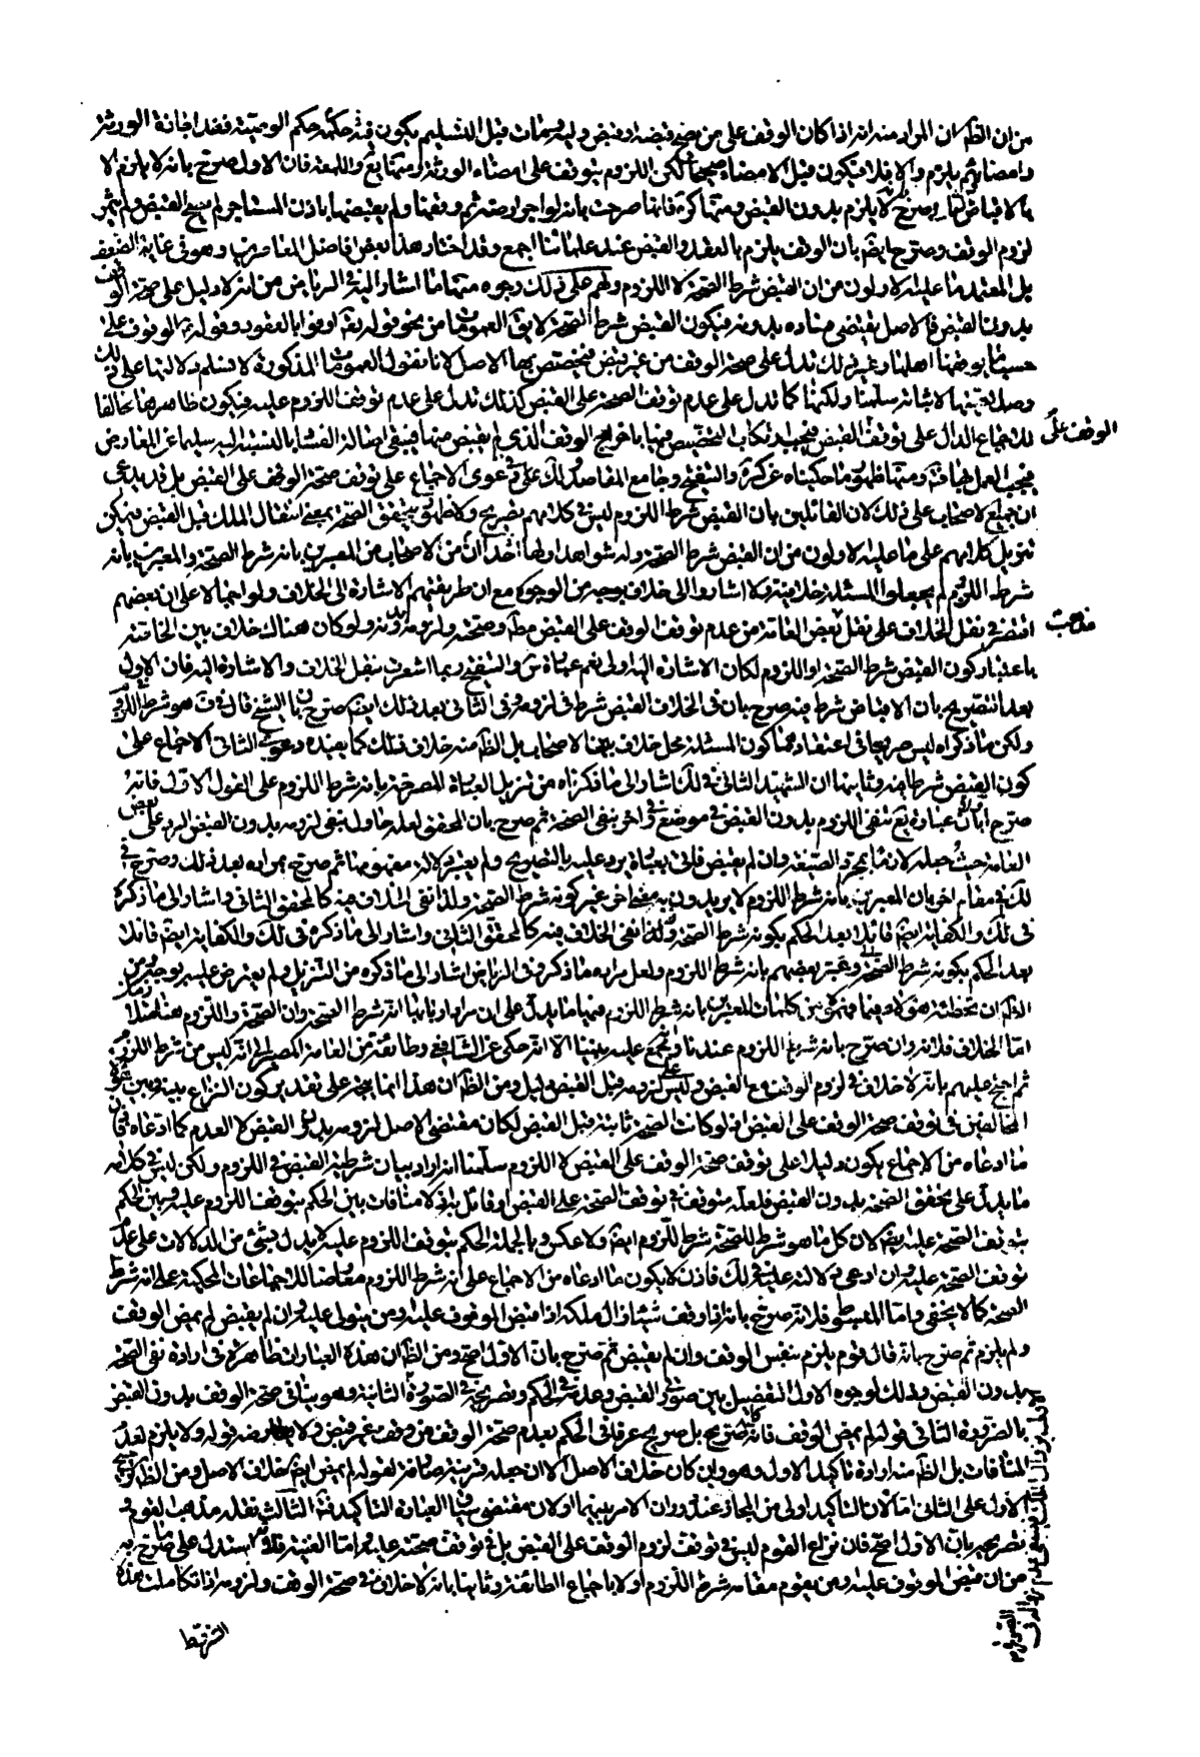 من ان الظ ان المراد منه انه اذا كان الوقف على من يصح قبضه او قبض وليه ومات قبل التسليم يكون فيه حكمه حكم الوصيته فعند اجازة الورثة
وامضائهم يلزم والا فلا فيكون قبل الامضاء صحيحا لكن اللزوم يتوقف على امضاء الورثة ومنها يع واللمعة فان الاول صرح بانه لا يلزم الا
بالاقباض لا يلزم بدون القبض ومنها كرة فانها صرحت بانه لو اجر ارضه ثم وقفها ولم يقبضها باذن المستاجر لم يصح القبض ولم يثمر
لزوم الوقف وصرح ايضا بان الوقف يلزم بالعقد والقبض عند علمائنا اجمع وقد اختار هذا بعض افاضل المعاصرين وهو في غاية الضعف
بل المعتمد ما عليه الاولون من ان القبض شرط الصحة لا اللزوم ولهم على ذلك وجوه منها ما اشار اليه في الرياض من انه لا دليل على صحة الوقف
بدون القبض فالاصل يقتضى فساده بدونه فيكون القبض شرط الصحة لا يق العمومات من نحو قوله تع اوفوا بالعقود وقوله الوقوف على
حسب ما يوقفها اهلها وغير ذلك تدل على صحة الوقف من غير قبض فيخصص بها الاصل لانا نقول العمومات المذكورة لا نسلم دلالتها على ذلك
سلمنا ولكنها كما تدل على عدم توقف الصحة على القبض كذلك تدل على عدم توقف اللزوم عليه فيكون ظاهرها مخالفا
للاجماع الدال على توقف الوقف على القبض فيجب ارتكاب التخصيص فيها باخراج الوقف الذي لم يقبض منها فيبقى اصالة الفساد بالنسبة اليه سليما عن المعارض
فيجب العمل بها ومنها ظهور ما حكيناه عن كرة والتنقيح وجامع المقاصد ولك في دعوى الاجماع على توقف صحة الوقف على القبض بل قد يدعى
ان جميع الاصحاب على ذلك لان القائلين بان القبض شرط اللزوم ليس في كلامهم تصريح ولا ظهور بتحقق الصحة بمعنى انتقال الملك قبل القبض فيمكن
تنزيل كلامهم على ما عليه الاولون من ان القبض شرط الصحة وله شواهد اولها ان احدا من الاصحاب من المعبرين بانه شرط الصحة والمعبرين بانه
شرط اللزوم لم يجعلوا المسئلة خلافية ولا اشاروا الى خلاف بوجه من الوجوه مع ان طريقتهم الاشارة الى الخلاف ولو احتمالا على ان بعضهم
اقتصر في نقل الخلاف على نقل مذهب بعض العامة من عدم توقف الوقف على القبض مط وصحته ولزومه بدونه ولو كان هناك خلاف بين الخاصة
باعتبار كون القبض شرط الصحة او اللزوم لكان الاشارة اليه اولى نعم عبارة س والتنقيح ربما اشعرت بنقل الخلاف والاشارة اليه فان الاول
بعد التصريح بان الاقباض شرط فيه صرح بان في الخلاف القبض شرط في لزومه وفي الثاني بعد ذلك ايضا صرح بان الشيخ قال في ف هو شرط اللزوم
ولكن ما ذكراه ليس صريحا في اعتقادهما كون المسئلة محل خلاف بينها الاصحاب بل الظ منه خلاف ذلك كما يفيده دعوى الثاني الاجماع على
كون القبض شرطا فيه وثانيها ان الشهيد الثاني في لك اشار الى ما ذكرناه من تنزيل العبارة المصرحة بانه شرط اللزوم على القول الاول فانه
صرح بان عبارة يع تنفى اللزوم بدون القبض في موضع وفي اخر بنفي الصحة ثم صرح بان المحقق لعله حاول بنفي لزومه بدون القبض الرد على بعض
العامة حيث جعله لازما بمجرد الصيغة وان لم يقبض فاتى بعبارة يرد عليه بالتصريح ولم يعتبر دلالة مفهومها ثم صرح بمراده بعد ذلك وصرح في
لك في مقام اخر بان المعبرين بانه شرط اللزوم لا يريدون به معنى اخر غير كونه شرط الصحة ولذا نفى الخلاف فيه كالمحقق الثاني واشار الى ما ذكره
في لك والكفاية ايضا قائلا بعد الحكم بكونه شرط الصحة ولذا نفى الخلاف فيه كالمحقق الثاني واشار الى ما ذكره في لك والكفاية ايضا قائلا
بعد الحكم بكونه شرط الصحة وعبر بعضهم بانه شرط اللزوم ولعل مراده ما ذكر وفي الرياض اشار الى ما ذكروه من التنزيل ولم يعترض عليه بوجه ومن
الظ ان تخطئة هؤلاء فيما فهموه من كلمات المعبرين بانه شرط اللزوم فيها ما يدل على ان مراد اربابها انه شرط الصحة وان الصحة واللزوم هنا متلازمان
اما الخلاف فلانه وان صرح بانه شرط اللزوم عندنا وانه مجمع عليه بيننا الا انه حكى عن الشافعي وطائفة من العامة انه ليس من شرط اللزوم
ثم احتج عليهم بانه لا خلاف في لزوم الوقف مع القبض وليس على لزومه قبل القبض دليل ومن الظ ان هذا انما يتجه على تقدير كون النزاع بينه وبين هؤلاء
المخالفين في توقف صحة الوقف على القبض اذ لو كانت الصحة ثابتة قبل القبض لكان مقتضى الاصل لزومه بدون القبض لا العدم كما ادعاه فان
ما ادعاه من الاجماع يكون دليلا على توقف صحة الوقف على القبض لا اللزوم سلمنا انه اراد بيان شرطية القبض في اللزوم ولكن ليس في كلامه
ما يدل على تحقق الصحة بدون القبض فلعله متوقف في توقف الصحة على القبض او قائل به اذ لا منافات بين الحكم بتوقف اللزوم عليه وبين الحكم
بتوقف الصحة عليه ايضا لان كل ما هو شرط للصحة شرط للزوم ايضا ولا عكس وبالجملة الحكم بتوقف اللزوم عليه لا يدل بشيء من الدلالات على عدم
توقف الصحة عليه وان ادعى دلالته عليه في لك فاذن لا يكون ما ادعاه من الاجماع على انه شرط اللزوم معارضا للاجماعات المحكية على انه شرط
الصحة كما لا يخفى واما المبسوط فلانه صرح بانه اذا وقف شيئا زال ملكه اذا قبض الموقوف عليه ومن يتولى عليه وان لم يقبض لم يمض الوقف
ولم يلزم ثم صرح بانه قال قوم يلزم بنفس الوقف وان لم يقبض ثم صرح بان الاول اصح ومن الظ ان هذه العبارات ظاهرة في ارادة نفى الصحة
بدون القبض وذلك لوجوه الاول التفصيل بين صورتى القبض وعدمه في الحكم وتصريحه في الصورة الثانية وهو ينافى صحة الوقف بدون القبض
بالضرورة الثاني قوله لم يمض الوقف فانه كالصريح بل صريح عرفا في الحكم بعدم صحة الوقف من وقف غير قبض ولا يعارضه قوله ولا يلزم لعدم
المنافات بل الظ منه ارادة تاكيد الاول وهو وان كان خلاف الاصل الا ان جعله قرينة صارفة لقوله لم يمض ايضا خلاف الاصل ومن الظ ترجيح
الاول على الثاني اما لان التاكيد اولى من المجاز عند دوران الامر بينهما او لان مقتضى سياق العبارة التاكيد الثالث نقله مذهب القوم و
تصريحه بان الاول اصح فان نزاع القوم ليس في توقف لزوم الوقف على القبض بل في توقف صحته عليه واما الغنية فلانه استدل على ما صرح به
من ان قبض الموقوف عليه ومن يقوم مقامه شرط اللزوم اولا باجماع الطائفة وثانيا بانه لا خلاف في صحة الوقف ولزومه اذا تكاملت هذه
الشرائط
الوقف على
مذهب